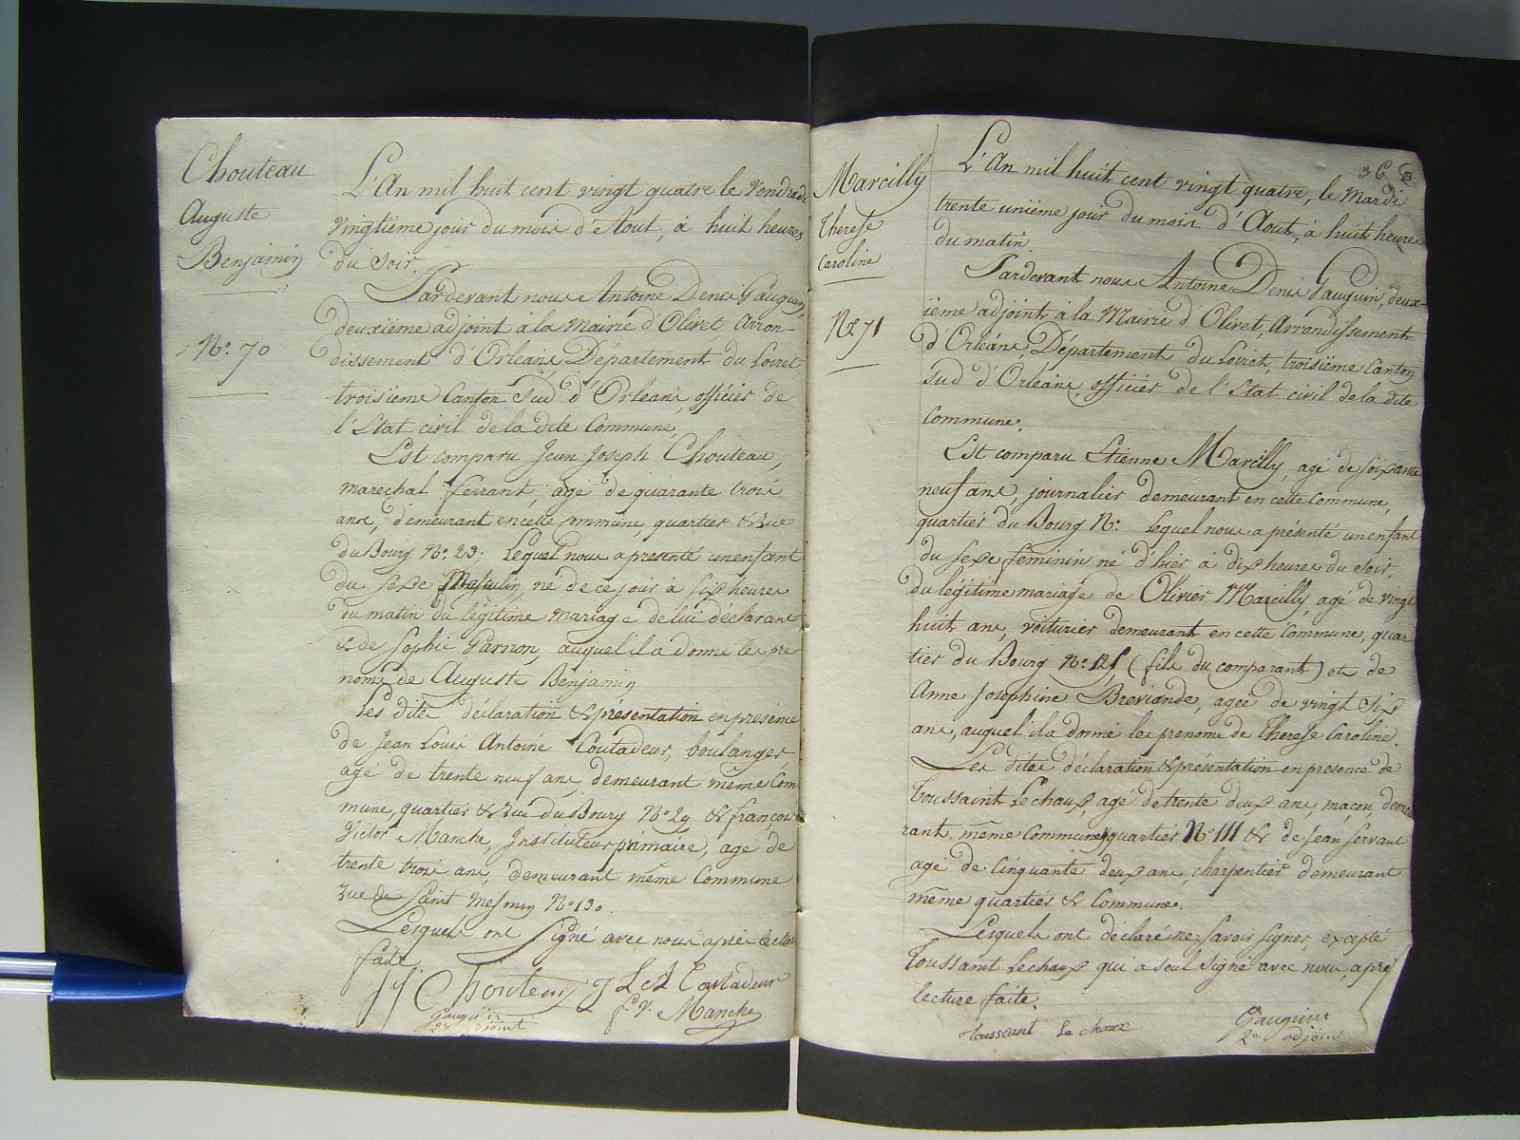 Chouteau
Auguste
Benjamin
N.º 70
L'An mil huit cent vingt quatre le Vendredi
vingtième jour du mois d'Aout, à huit heures
du Soir.
Pardevant nous Antoine Denis Gauguin,
deuxième adjoint à la Mairie d'Olivet Arron
dissement d'Orléans, Département du Loiret
troisième Canton Sud d'Orléans, officier de
l'Etat civil de la dite Commune,
Est comparu Jean Joseph Chouteau,
marechal ferrant, agé de quarante trois
ans, demeurant en cette Commune, quartier & rue
du Bourg N.º 23. Lequel nous a presenté un enfant
du sexe Masculin, né de ce jour à six heures
du matin du légitime mariage de lui déclarant
& de Sophie Garnon, auquel il a donné les pre
noms de Auguste Benjamin
Les dites déclaration & présentation en presence
de Jean Louis Antoine Coutadeur, boulanger
agé de trente neuf ans, demeurant même Com
mune, quartier & rue du Bourg N.º 29 & françois
Victor Manche, Instituteur primaire, agé de
trente trois ans, demeurant même Commune
rue de Saint Mesmin N.º 130.
Lesquels ont Signé avec nous après lecture
faite
J J Chouteau J L A Coutadeur
f. V. Manche
Gauguin
2e adjoint
36
Marcilly
Therese
Caroline
N.º 71
L'An mil huit cent vingt quatre, le Mardi
trente unième jour du mois d'Aout, à huit heures
du matin.
Pardevant nous Antoine Denis Gauguin, deux-
ième adjoint à la Mairie d'Olivet, Arrondissement
d'Orléans, Département du Loiret, troisième Canton
Sud d'Orléans, officier de l'Etat civil de la dite
Commune.
Est comparu Etienne Marcilly, agé de soixante
neuf ans, journalier demeurant en cette Commune,
quartier du Bourg N.º Lequel nous a présenté un enfant
du sexe féminin né d'hier à dix heures du soir,
du légitime mariage de Olivier Marcilly, agé de vingt
huit ans, voiturier demeurant en cette Commune, quar
tier du Bourg N.º (fils du comparant) et de
Anne Josephine Breviande, agée de vingt Six
ans, auquel il a donné les prenoms de Therese Caroline.
Les dites déclaration & présentation en presence de
Toussaint Lechaux, agé de trente deux ans, maçon, demeu
rant même Commune, quartier N.º 111 & de Jean Servant
agé de Cinquante deux ans, charpentier demeurant
même quartier & Commune.
Lesquels ont déclaré ne savoir signer, excepté
Toussaint Lechaux qui a seul signé avec nous, après
lecture faite.
Toussaint Le chaux
Gauguin
2e adjoint